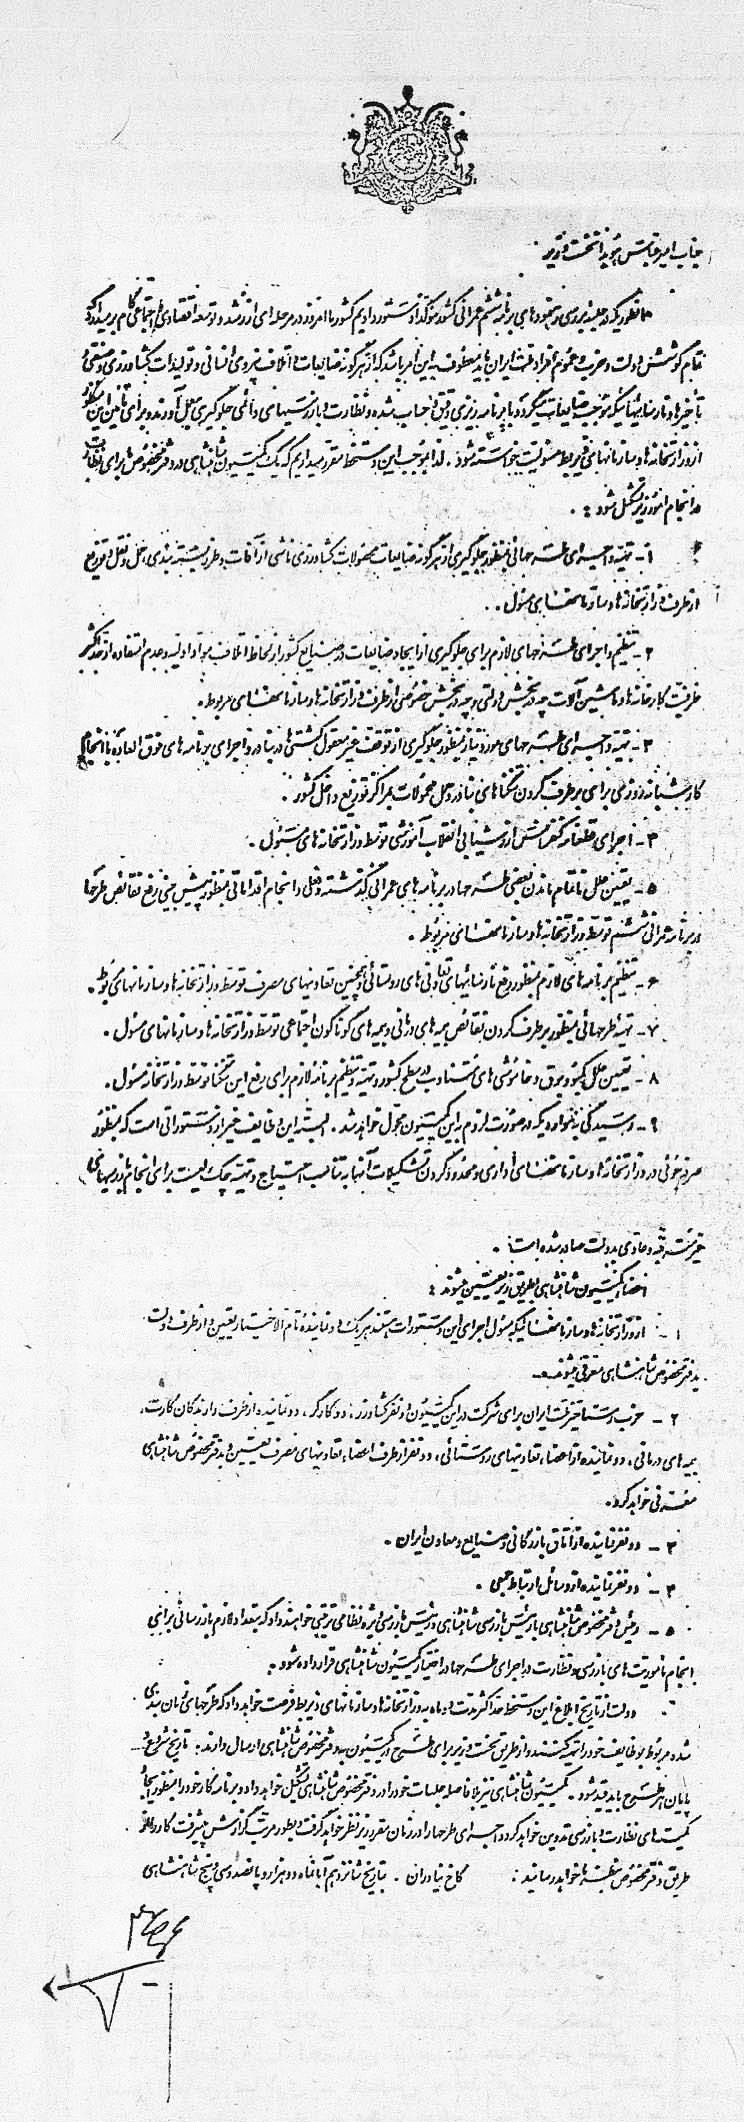 جناب امیرعباس هویدا نخست وزیر
همانطوریکه در جلسه بررسی رهنمودهای برنامه ششم عمرانی کشور مؤکداً دستور دادیم کشور ما امروز در مرحله‌ای از رشد و توسعه اقتصادی و اجتماعی گام برمیدارد که
تمام کوشش دولت و حزب و عموم افراد ملت ایران باید معطوف به این امر باشد که از هرگونه ضایعات و اتلاف نیروی انسانی و تولیدات کشاورزی و صنعتی و
تأخیرها و نارسائیهائیکه موجب ضایعات میگردد با برنامه‌ریزی دقیق و حساب شده و نظارت و بازرسیهای دائمی جلوگیری بعمل آورند و برای تأمین این منظور
از وزارتخانه‌ها و سازمانهای ذیربط مسئولیت خواسته شود . لذا بموجب این دستخط مقرر میداریم که یک کمیسیون شاهنشاهی در دفتر مخصوص ما برای نظارت
در انجام امور زیر تشکیل شود :
۱ - تهیه و اجرای طرحهائی بمنظور جلوگیری از هرگونه ضایعات محصولات کشاورزی ناشی از آفات و طرز بسته‌بندی ، حمل و نقل و توزیع
از طرف وزارتخانه‌ها و سازمانهای مسئول .
۲ - تنظیم و اجرای طرحهای لازم برای جلوگیری از ایجاد ضایعات در صنایع کشور از لحاظ اتلاف مواد اولیه و عدم استفاده از حداکثر
ظرفیت کارخانه‌ها و ماشین‌آلات چه در بخش دولتی و چه در بخش خصوصی از طرف وزارتخانه‌ها و سازمانهای مربوط .
۳ - تهیه و اجرای طرحهای مورد نیاز بمنظور جلوگیری از توقف غیرمعقول کشتی‌ها در بنادر و اجرای برنامه‌های فوق‌العاده با انجام
کار شبانه‌روزی برای برطرف کردن تنگناهای بنادر و حمل محمولات بمراکز توزیع داخل کشور .
۴ - اجرای قطعنامه کنفرانس ارزشیابی انقلاب آموزشی توسط وزارتخانه‌های مسئول .
۵ - تعیین علل ناتمام ماندن بعضی طرحها در برنامه‌های عمرانی گذشته و فعلی و انجام اقداماتی بمنظور پیش‌بینی رفع نقائص طرحها
در برنامه عمرانی ششم توسط وزارتخانه‌ها و سازمانهای مربوط .
۶ - تنظیم برنامه‌های لازم بمنظور رفع نارسائیهای تعاونی‌های روستائی و همچنین تعاونیهای مصرف توسط وزارتخانه‌ها و سازمانهای مربوط .
۷ - تهیه طرحهائی بمنظور برطرف کردن نقائص بیمه‌های درمانی و بیمه‌های گوناگون اجتماعی توسط وزارتخانه‌ها و سازمانهای مسئول .
۸ - تعیین علل کمبود برق و خاموشی‌های متناوب در سطح کشور و تهیه و تنظیم برنامه لازم برای رفع این تنگنا توسط وزارتخانه مسئول .
۹ - رسیدگی بهر مواردیکه در صورت لزوم به این کمیسیون محول خواهد شد . البته این وظایف غیر از دستوراتی است که بمنظور
صرفه‌جوئی در وزارتخانه‌ها و سازمانهای اداری و محدود کردن تشکیلات آنها به تناسب احتیاج و تهیه چک لیست برای انجام بازرسیهای
غیرمترقبه و عادی بدولت صادر شده است .
اعضاء کمیسیون شاهنشاهی بطریق زیر تعیین میشوند :
۱ - از وزارتخانه‌ها و سازمانهائیکه مسئول اجرای این دستورات هستند هر یک دو نماینده تام‌الاختیار تعیین و از طرف دولت
بدفتر مخصوص شاهنشاهی معرفی میشوند .
۲ - حزب رستاخیز ملت ایران برای شرکت در این کمیسیون دو نفر کشاورز ، دو کارگر ، دو نماینده از طرف دارندگان کارت
بیمه‌های درمانی ، دو نماینده از اعضاء تعاونیهای روستائی ، دو نفر از طرف اعضاء تعاونیهای مصرف تعیین و بدفتر مخصوص شاهنشاهی
معرفی خواهد کرد .
۳ - دو نفر نماینده از اتاق بازرگانی و صنایع و معادن ایران .
۴ - دو نفر نماینده از وسائل ارتباط جمعی .
۵ - رئیس دفتر مخصوص شاهنشاهی با رئیس بازرسی شاهنشاهی و رئیس بازرسی ویژه نظامی ترتیبی خواهند داد که بتعداد لازم بازرسانی برای
انجام مأموریت‌های بازرسی و نظارت در اجرای طرحها در اختیار کمیسیون شاهنشاهی قرار داده شود .
دولت از تاریخ ابلاغ این دستخط حداکثر مدت دو ماه به وزارتخانه‌ها و سازمانهای ذیربط فرصت خواهد داد که طرحهای زمان‌بندی
شده مربوط بوظایف خود را تهیه کنند و از طریق نخست وزیر برای طرح در کمیسیون به دفتر مخصوص شاهنشاهی ارسال دارند . تاریخ شروع و
پایان هر طرح باید قید شود . کمیسیون شاهنشاهی نیز بلافاصله جلسات خود را در دفتر مخصوص شاهنشاهی تشکیل خواهد داد و برنامه کار خود را بمنظور ایجاد
کمیته‌های نظارت و بازرسی تدوین خواهد کرد و اجرای طرحها را در زمان مقرر زیر نظر خواهد گرفت و بطور مرتب گزارش پیشرفت کار را از
طریق دفتر مخصوص بنظر ما خواهد رسانید . کاخ نیاوران . بتاریخ شانزدهم آبانماه دو هزار و پانصد و سی و پنج شاهنشاهی